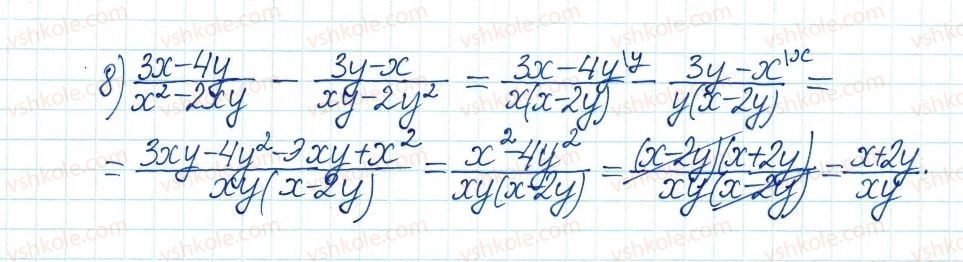 8) \frac{3x-4y}{x^2-2xy} - \frac{3y-x}{xy-2y^2} = \frac{3x-4y^{\backslash y}}{x(x-2y)} - \frac{3y-x^{\backslash x}}{y(x-2y)} =
= \frac{3xy-4y^2-3xy+x^2}{xy(x-2y)} = \frac{x^2-4y^2}{xy(x-2y)} = \frac{(x-2y)(x+2y)}{xy(x-2y)} = \frac{x+2y}{xy}.